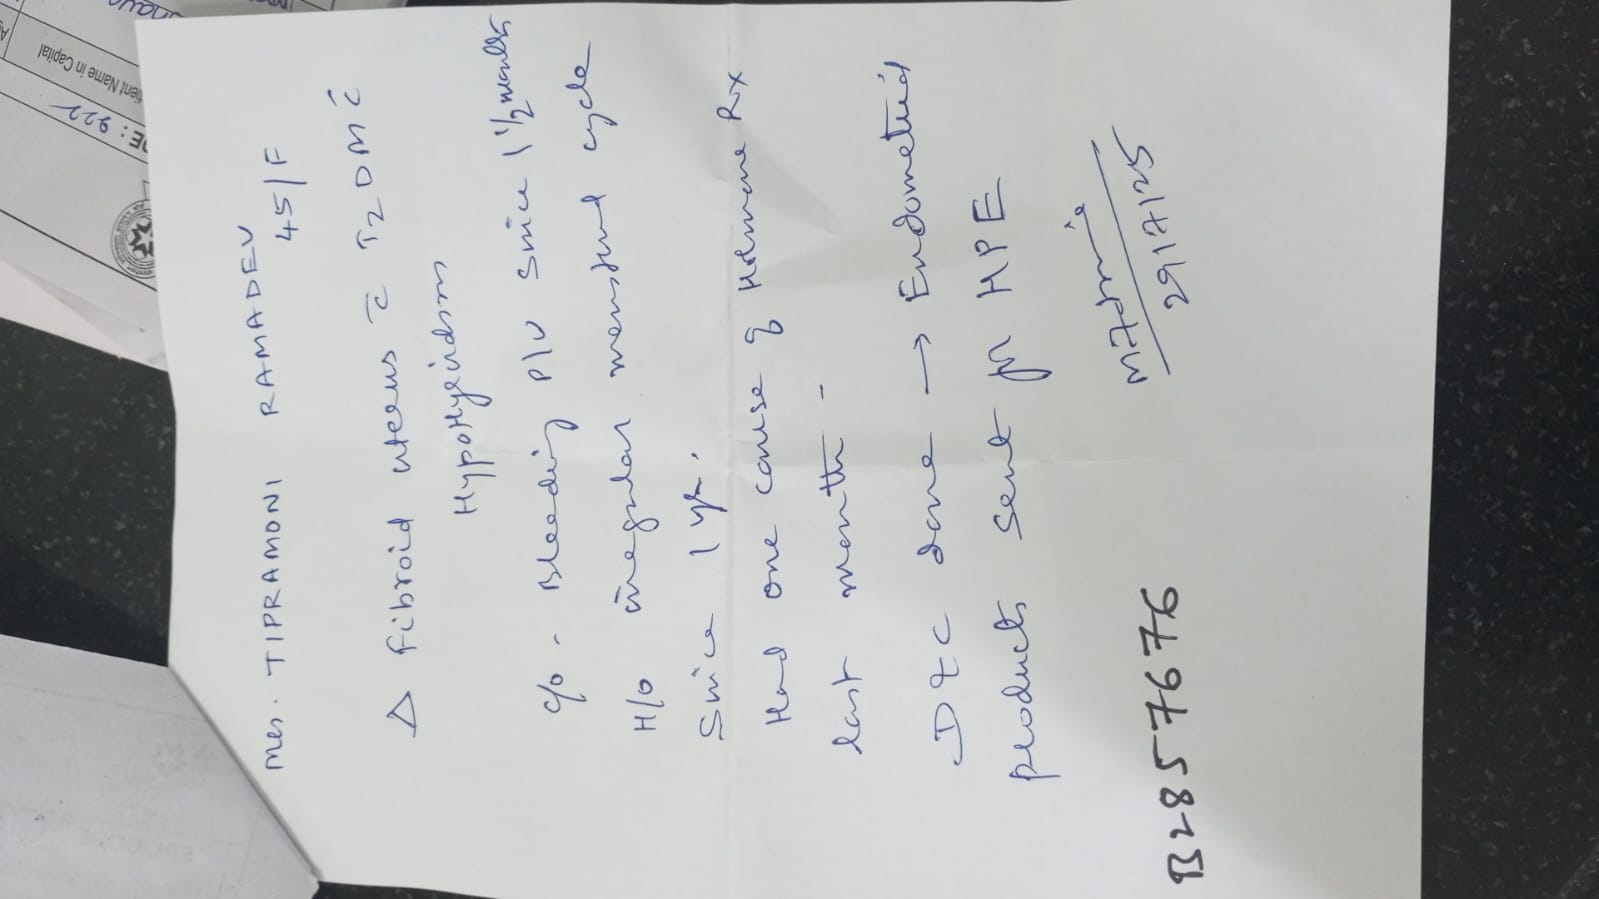 Mrs. TIPRAMONI RAMADEVI
45/F
Δ Fibroid uterus c̄ T2DM c̄
Hypothyroidism
c/o - Bleeding P/V since 1 1/2 months
H/o irregular menstrual cycle
since 1 yr.
Had one course of Hormone Rx
last month -
D & C done → Endometrial
products sent for HPE
29/7/25
B2857676
ient Name in Capital
DE : 922